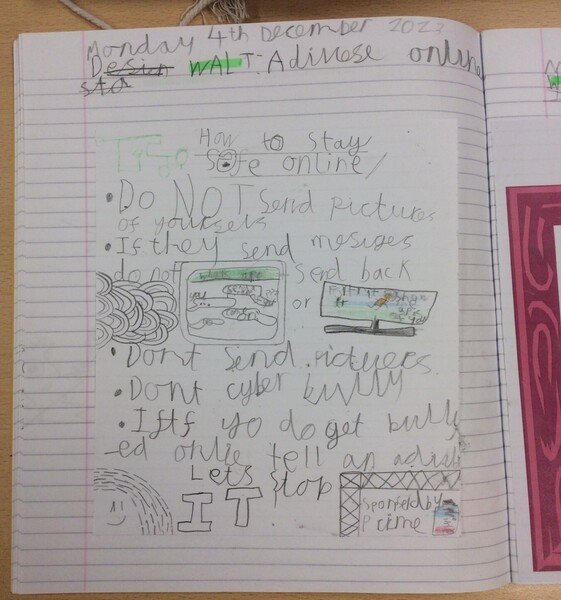 Monday 4th December 2023
Design WALT: Adivese online
sta
How to stay
Safe online
• Do NOT send pictures
of yourselfs
• If they send mesiges
do not send back
whats app
or
• Dont send pictuers
• Dont cyber bully
• Iftf yo do get bully
-ed onlie tell an adult
Lets stop
IT
Sponferd by
Prime